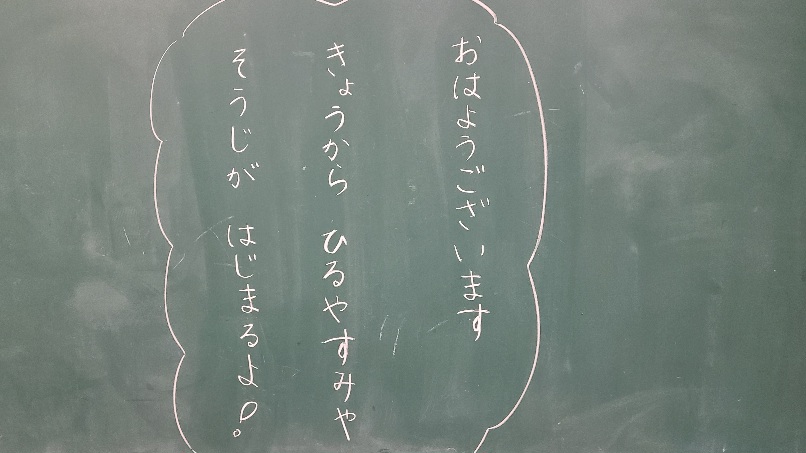 おはようございます
きょうから ひるやすみや
そうじが はじまるよ!